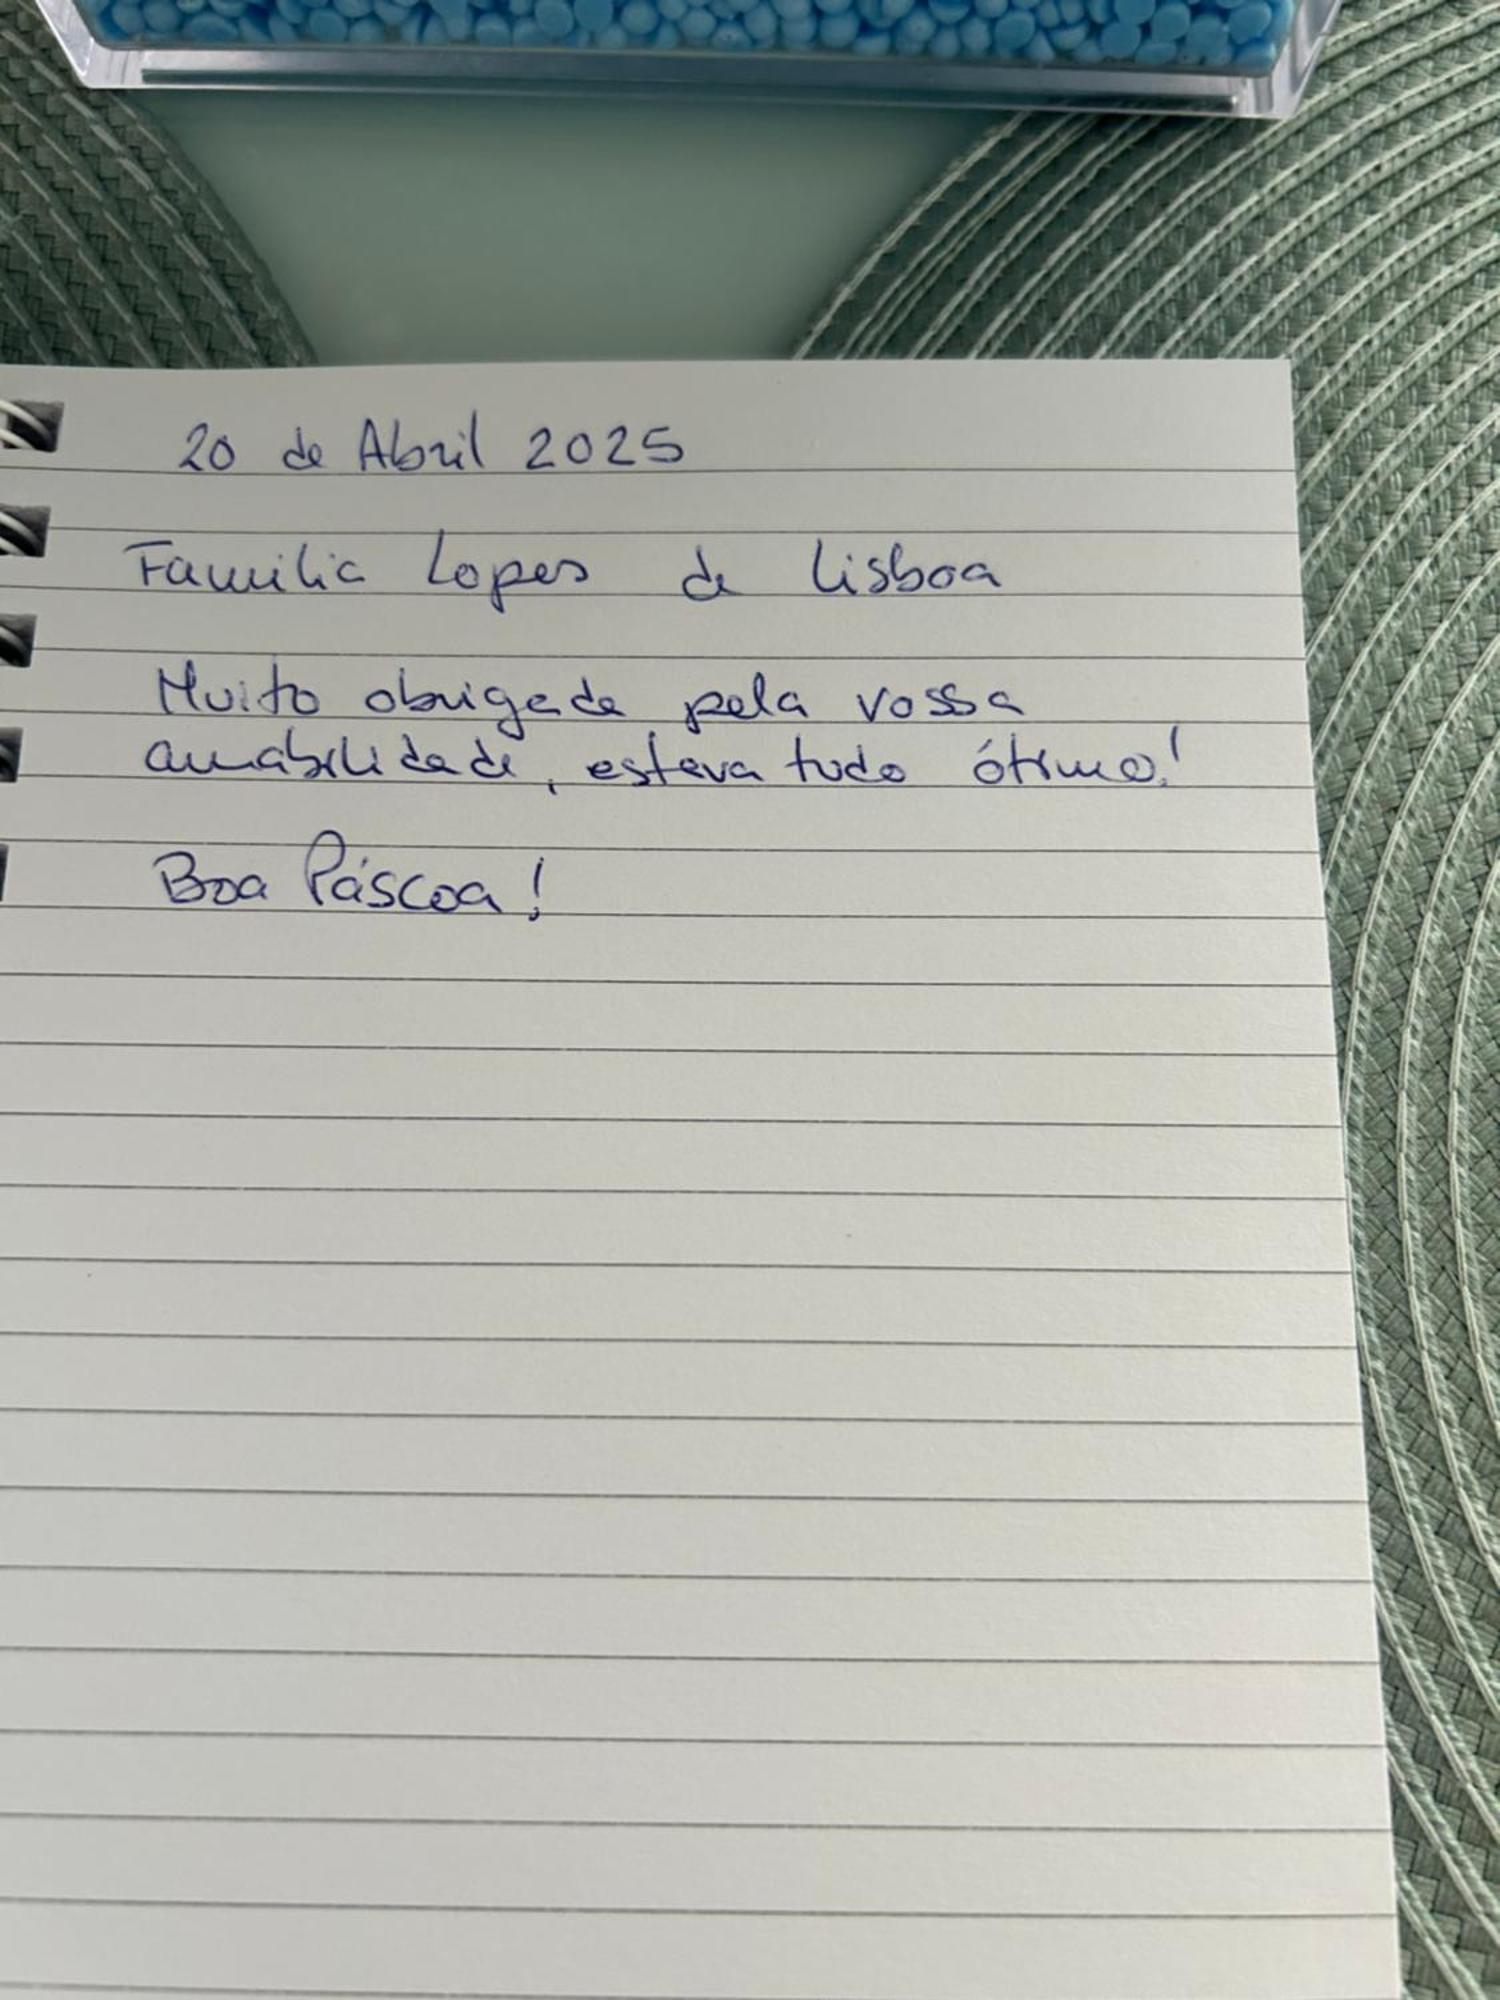 20 de Abril 2025
Familia Lopes de Lisboa
Muito obrigada pela vossa
amabilidade, estava tudo ótimo!
Boa Páscoa!